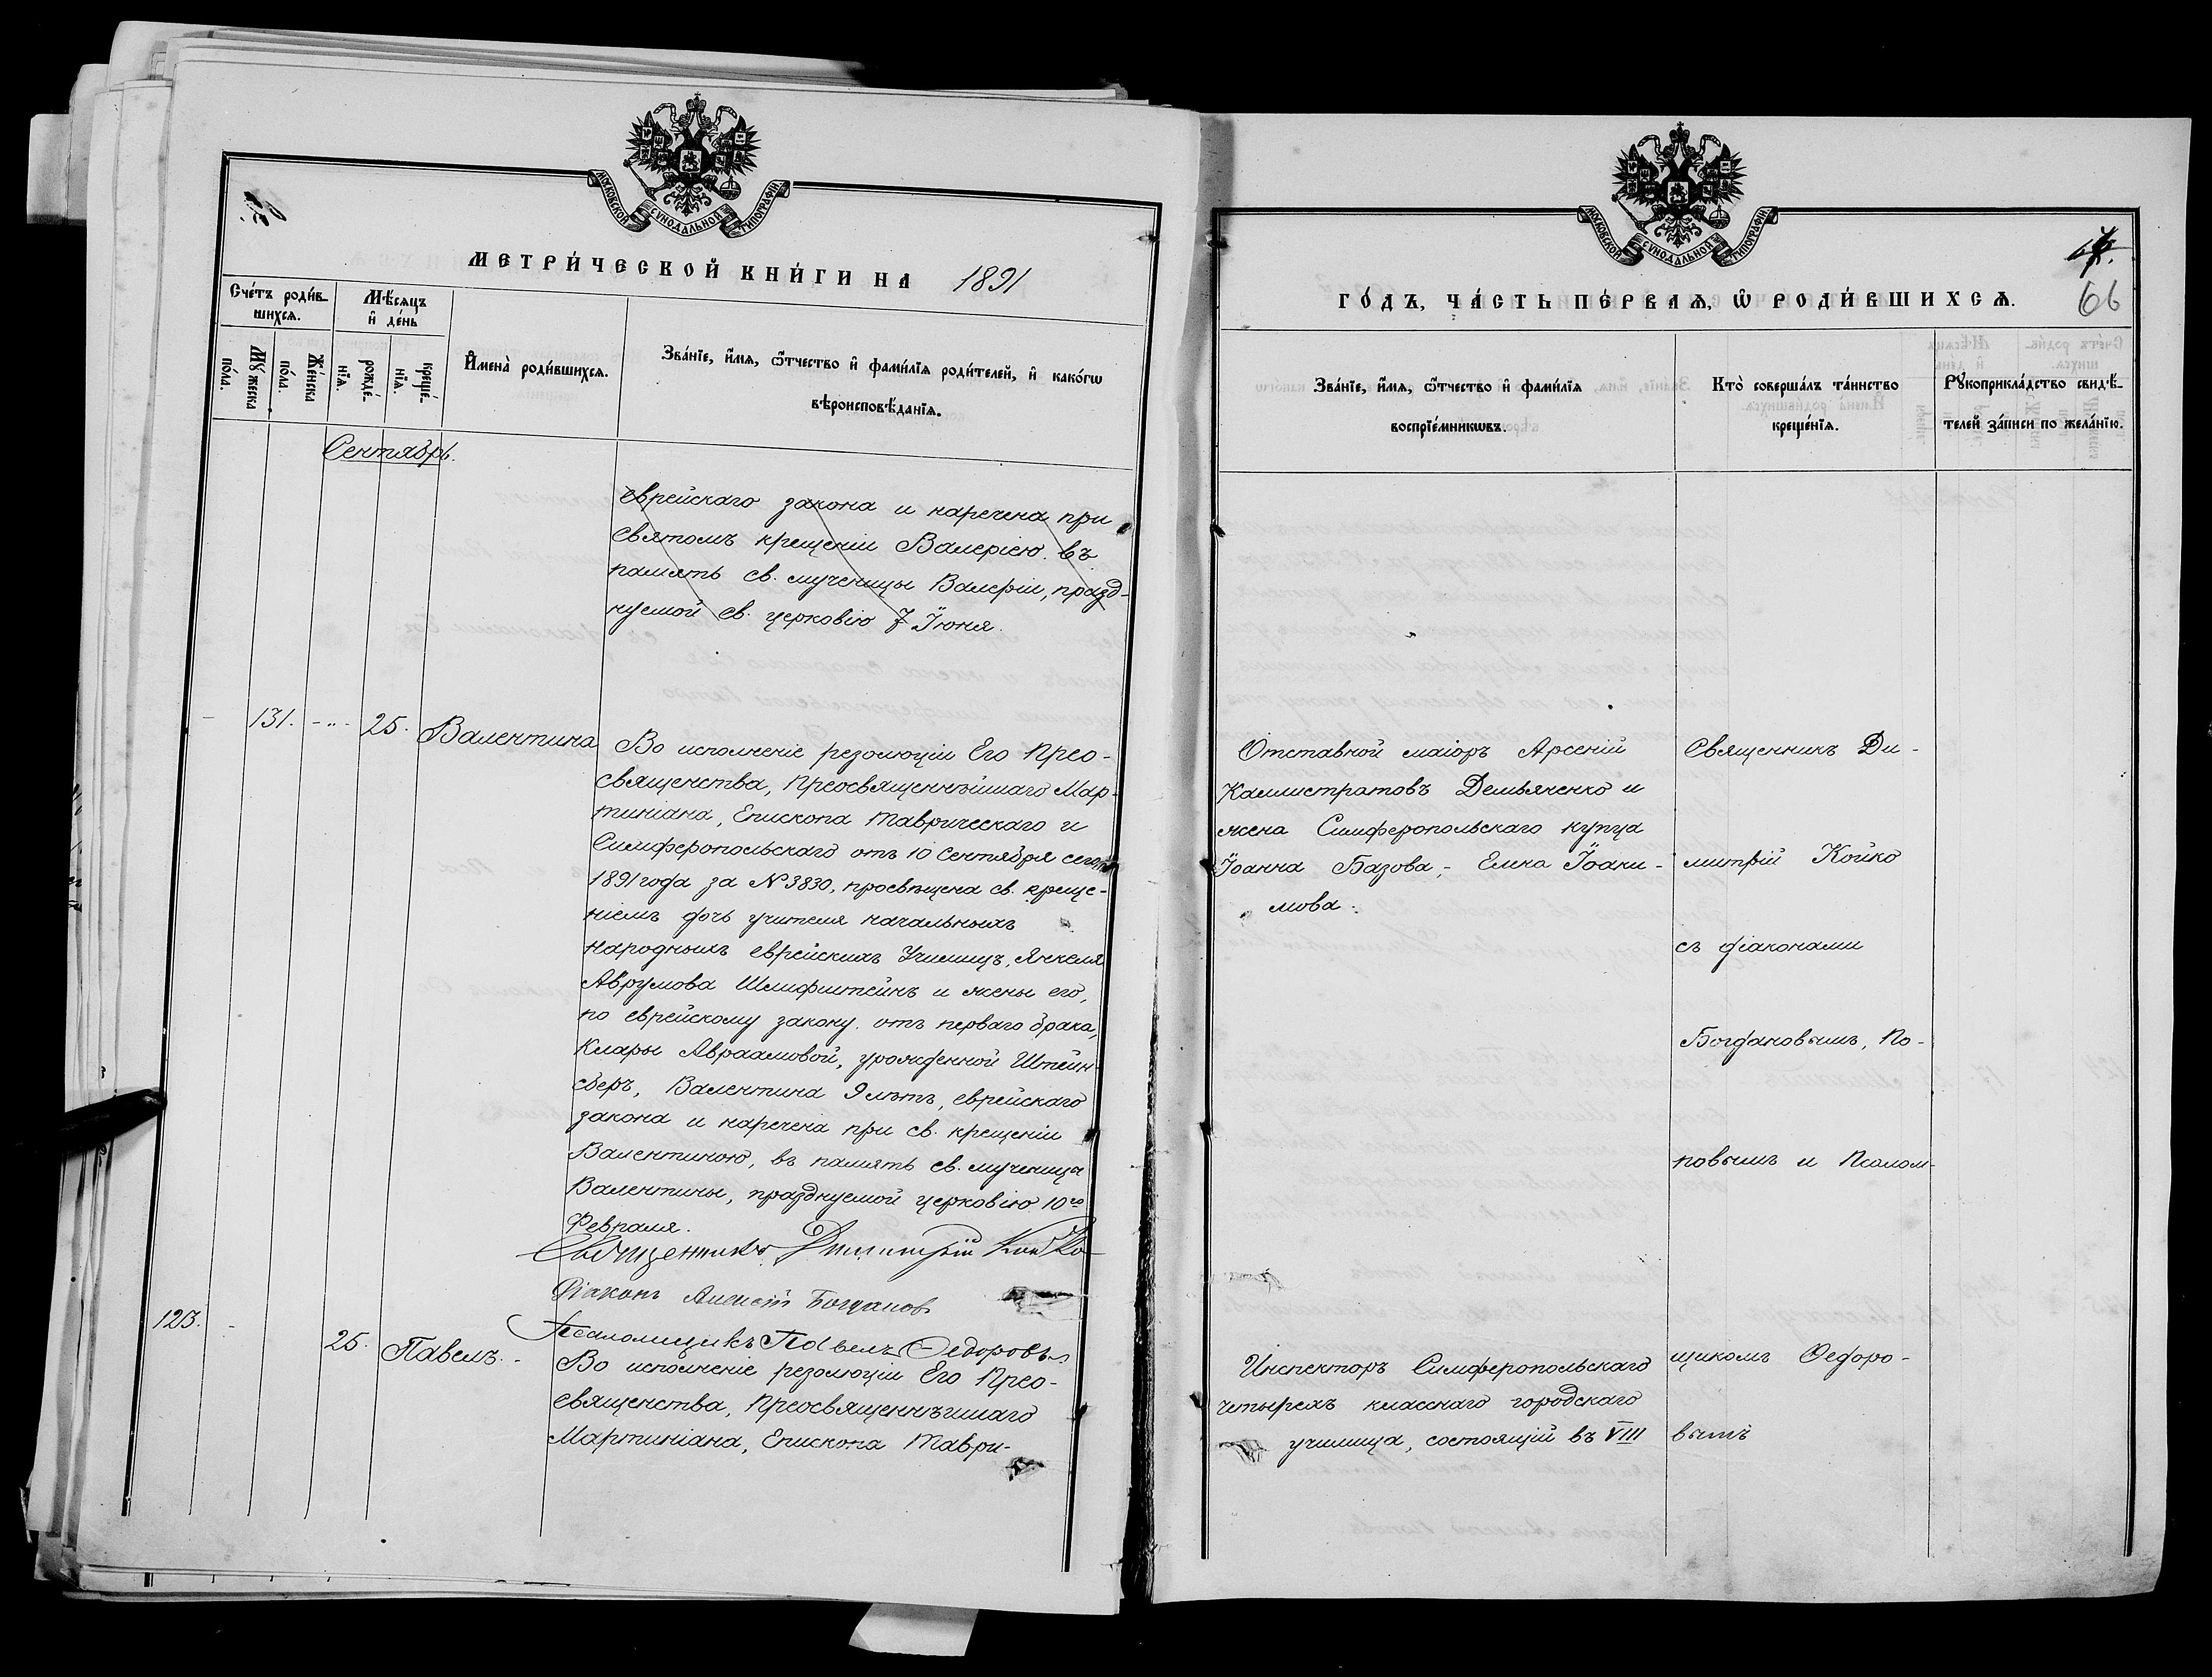 МОСКОВСКОЙ СѴНОДАЛЬНОЙ ТИПОГРАФІИ
МЕТРИ́ЧЕСКОЙ КНИ́ГИ НА 1891
Сче́тъ роди́в-
шихся.
Мѣ́сяцъ
и҆ де́нь
Мꙋ́жеска
по́ла.
Же́нска
по́ла.
рожде́-
нїѧ.
креще́-
нїѧ.
И҆мена̀ роди́вшихсѧ.
Зва́нїе, и҆́мѧ, ѻ҆́тчество и҆ фами́лїѧ роди́телей, и҆ како́гѡ
вѣроисповѣ́данїѧ.
Сентябрь.
еврейскаго закона и наречена при
Святомъ крещеніи Валеріею въ
память св. мученицы Валеріи, празд-
нуемой св. церковію 7 Іюня.
- 131. - „ - 25. Валентина
Во исполненіе резолюціи Его Прео-
священства, Преосвященнѣйшаго Мар-
тиніана, Епископа Таврическаго и
Симферопольскаго отъ 10 Сентября сего
1891 года за № 3830, просвѣщена св. креще-
ніемъ дочь учителя начальныхъ
народныхъ еврейскихъ Училищъ, Янкеля
Аврумова Шлифштейнъ и жены его,
по еврейскому закону, отъ перваго брака,
Клары Авраамовой, урожденной Штейн-
сберъ, Валентина 9 лѣтъ, еврейскаго
закона и наречена при св. крещеніи
Валентиною, въ память св. мученица
Валентины, празднуемой церковію 10го
Февраля.
Священникъ Димитрій Койко
Діаконъ Алексій Богданов
Псаломщикъ Павелъ Ѳедоровъ
123. - 25. Павелъ. -
Во исполненіе резолюціи Его Прео-
священства, Преосвященнѣйшаго
Мартиніана, Епископа Таври-
МОСКОВСКОЙ СѴНОДАЛЬНОЙ ТИПОГРАФІИ
66
ГО́ДЪ, ЧА́СТЬ ПЕ́РВАѦ, Ѽ РОДИ́ВШИХСѦ.
Зва́нїе, и҆́мѧ, ѻ҆́тчество и҆ фами́лїѧ
воспрїе́мникѡвъ.
Кто̀ соверша́лъ та́инство
креще́нїѧ.
Рꙋкоприкла́дство свидѣ́-
телей за́писи по жела́нїю.
Отставной маіоръ Арсеній
Каллистратовъ Демьяненко и
жена Симферопольскаго купца
Іоанна Базова, - Елена Іоаки-
мова.
Священникъ Ди-
митрій Койко
съ діаконами
Богдановымъ, По-
повымъ и Псалом-
щикомъ Ѳедоро-
вымъ
Инспекторъ Симферопольскаго
четырехъ класснаго городскаго
училища, состоящій въ VIII